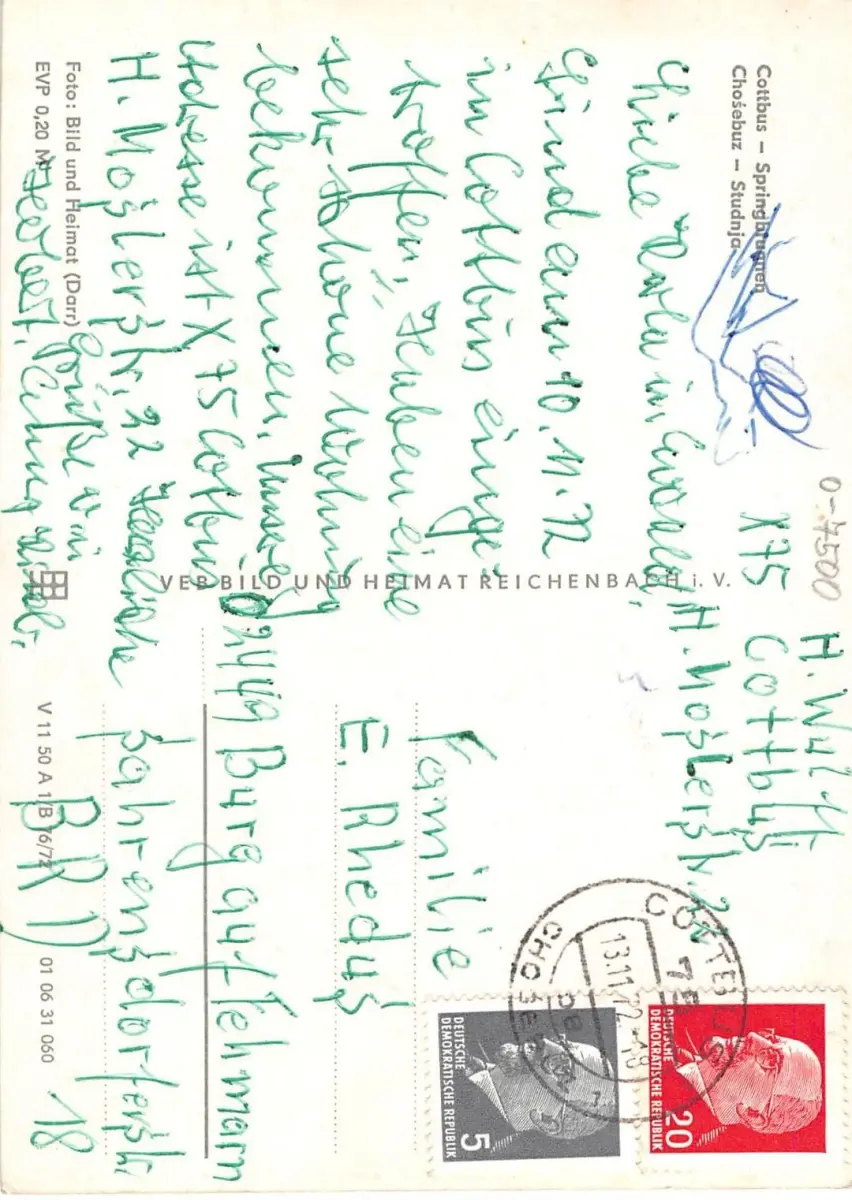 Cottbus – Springbrunnen
Chośebuz – Studnja
Liebe
Sind am 10.11.72
in Cottbus einge-
troffen, Haben eine
sehr schöne Wohnung
bekommen, Unsere
Adresse ist X 75 Cottbus
H. Moßlerstr. 22 Herzliche
Grüße von
Herbert,
Foto: Bild und Heimat (Darr)
EVP 0,20 M
VEB BILD UND HEIMAT REICHENBACH i. V.
V 11 50 A 1/B 76/72 01 06 31 060
0-7500
H. Wulff
X75 Cottbus
H. Moßlerstr. 22
COTTBUS
75
13.11.72-18
CHOŚEBUZ
DEUTSCHE DEMOKRATISCHE REPUBLIK
20
DEUTSCHE DEMOKRATISCHE REPUBLIK
5
Familie
E. Rheduß
02449 Burg auf Fehmarn
Bahrensdorferstr.
18
BRD